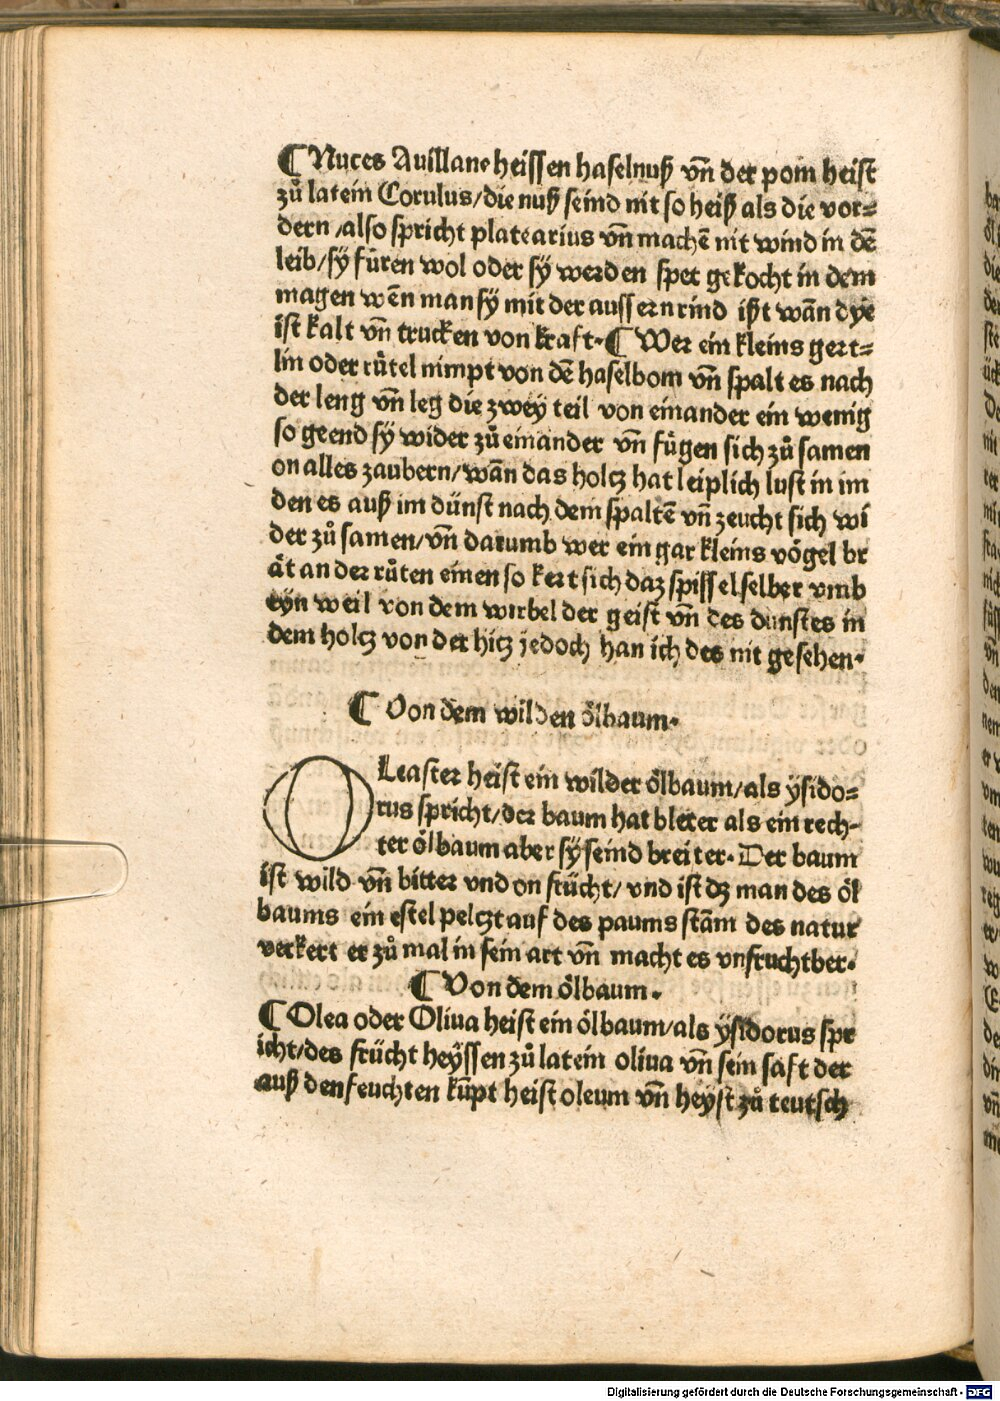 ¶ Nuces Auillane heissen haselnuß vñ der pom heist
zů latein Corulus/die nuß seind nit so heiß als die vor=
dern/also spricht platearius vñ machē nit wind in dē
leib/sÿ fůren wol oder sÿ werden spet gekocht in dem
magen wēn man sÿ mit der aussern rind ißt wān dÿe
ist kalt vñ trucken von kraft. ¶ Wer ein kleins gert=
lin oder růtel nimpt von dē haselbom vñ spalt es nach
der leng vñ leg die zweÿ teil von einander ein wenig
so geend sÿ wider zů einander vñ fügen sich zů samen
on alles zaubern/wān das holcz hat leiplich lust in im
den es auß im dünst nach dem spaltē vñ zeucht sich wi
der zů samen/vñ darumb wer ein gar kleins vögel br
ät an der růten einen so kert sich daz spissel selber vmb
eÿn weil von dem wirbel der geist vñ des dunstes in
dem holcz von der hicz jedoch han ich des nit gesehen.
¶ Von dem wilden ölbaum.
OLeaster heist ein wilder ölbaum/als ÿsido=
rus spricht/der baum hat bleter als ein rech-
ter ölbaum aber sÿ seind breiter. Der baum
ist wild vñ bitter vnd on frücht/vnd ist dz man des öl
baums ein estel pelczt auf des paums stām des natur
verkert er zů mal in sein art vñ macht es vnfruchtber.
¶ Von dem ölbaum.
¶ Olea oder Oliua heist ein ölbaum/als ÿsidorus spr
icht/des frücht heÿssen zů latein oliua vñ sein saft der
auß den feuchten kūpt heist oleum vñ heÿst zů teutsch
Digitalisierung gefördert durch die Deutsche Forschungsgemeinschaft - DFG